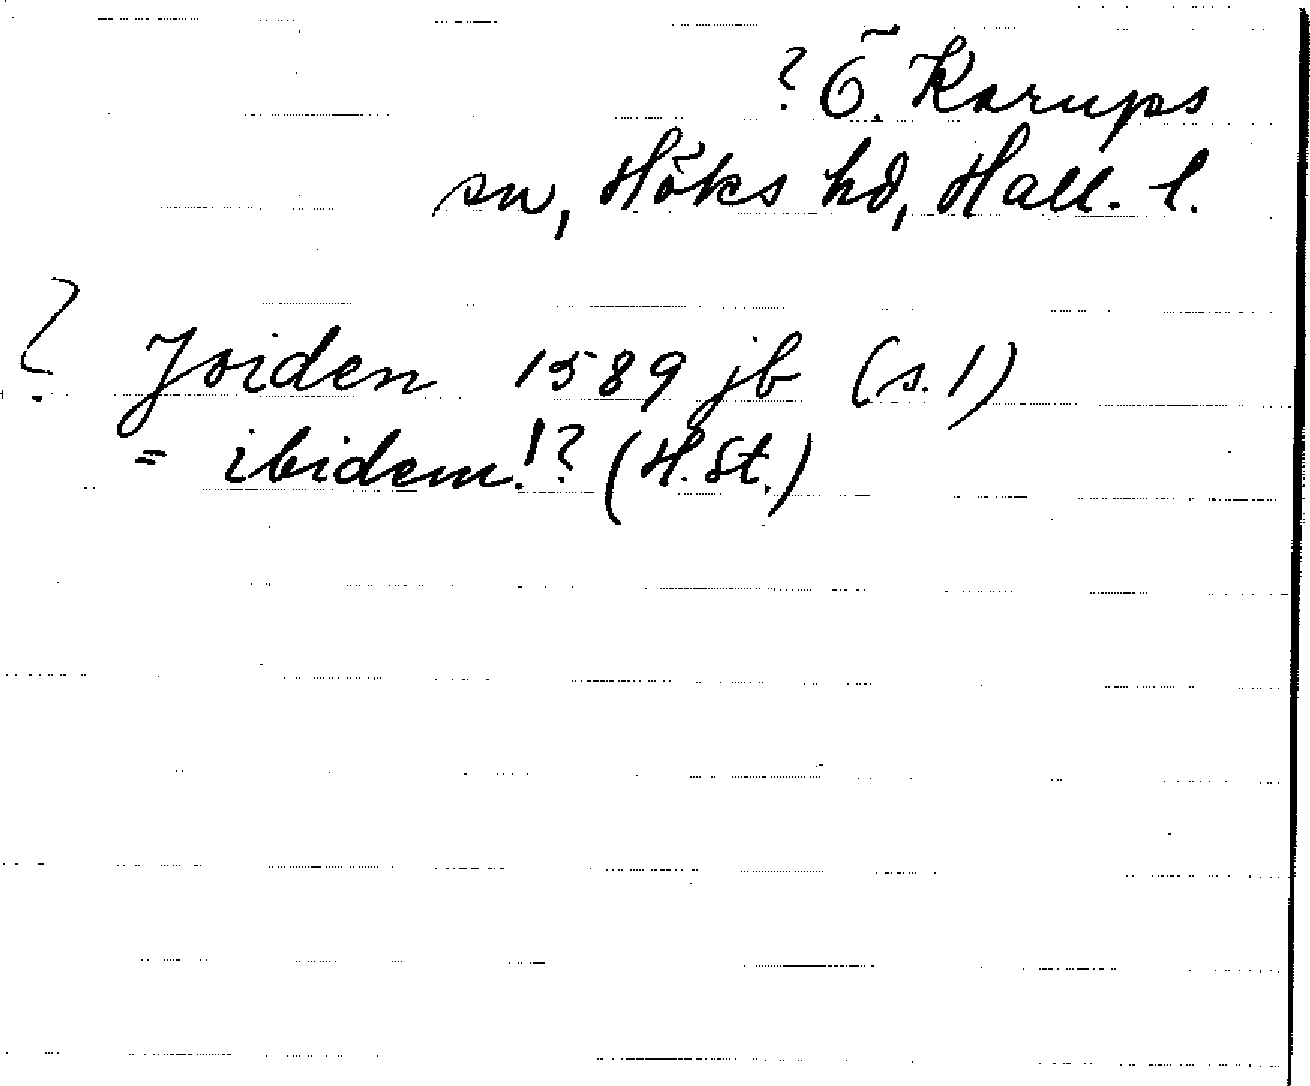 ? Ö. Karups
sn, Höks hd, Hall. l.
? Joiden 1589 jb (s. 1)
= ibidem!? (H.St.)